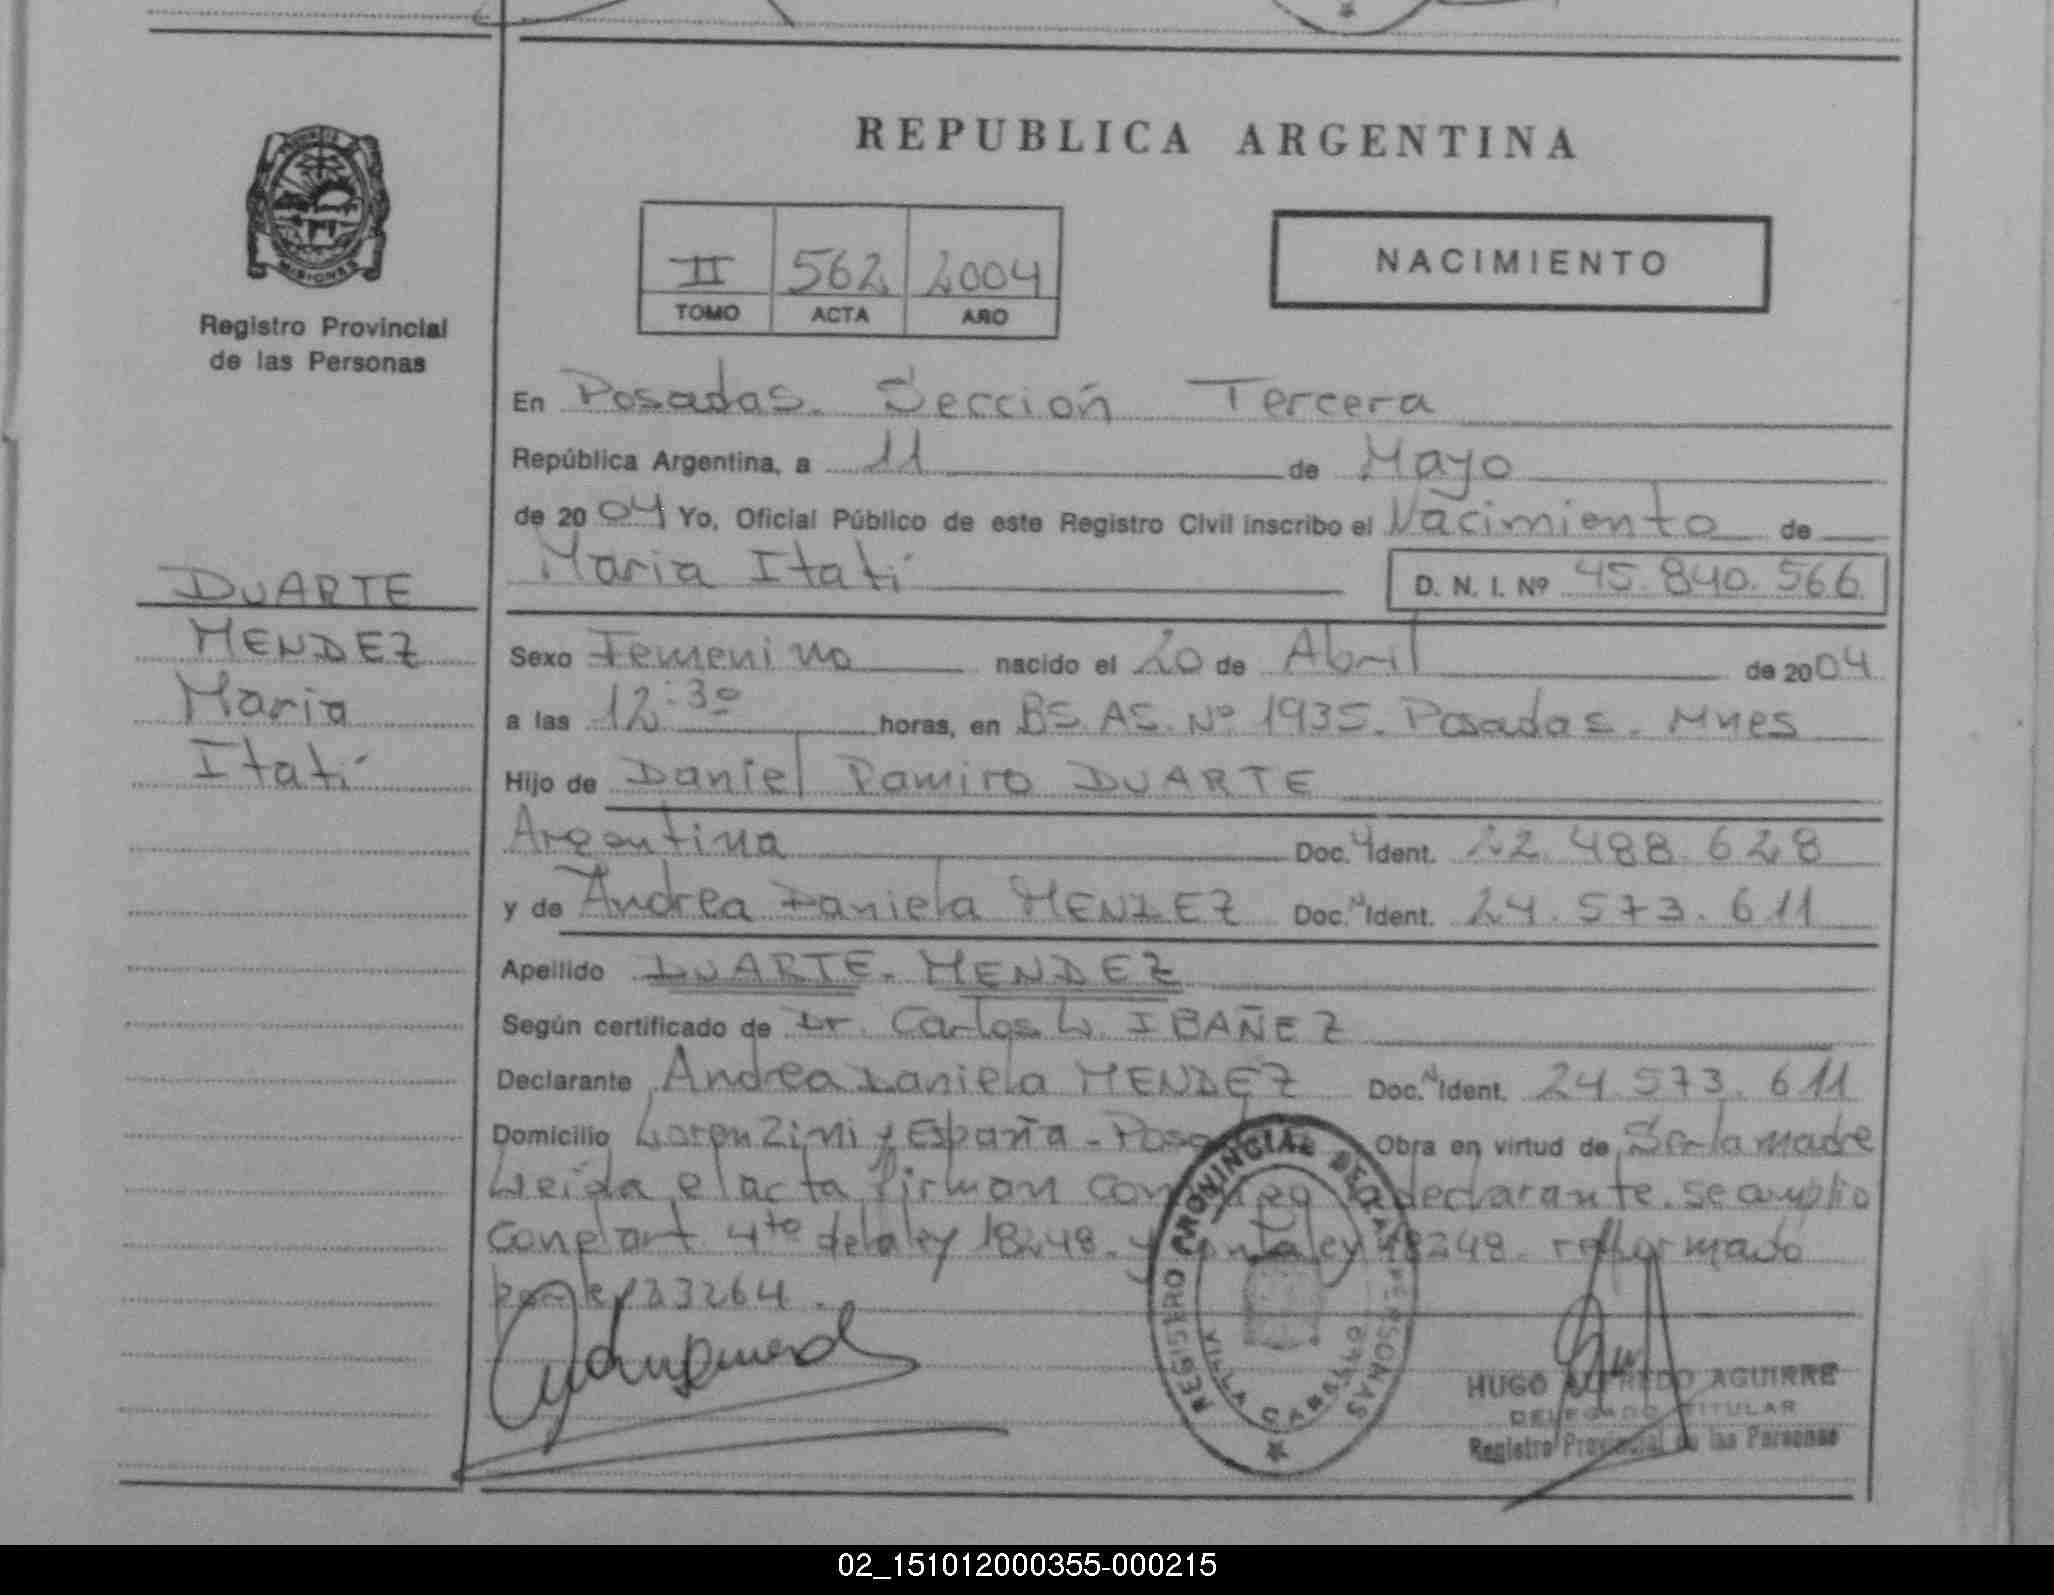 REPUBLICA ARGENTINA
MISIONES
Registro Provincial
de las Personas
II 562 2004
TOMO ACTA AÑO
NACIMIENTO
En Posadas. Sección Tercera
República Argentina, a 11 de Mayo
de 2004 Yo, Oficial Público de este Registro Civil inscribo el Nacimiento de
Maria Itatí D. N. I. Nº 45.840.566
DUARTE
MENDEZ
Maria
Itatí
Sexo Femenino nacido el 20 de Abril de 2004
a las 12:30 horas, en BS.AS. Nº 1935. Posadas. Mnes
Hijo de Daniel Ramiro DUARTE
Argentina Doc. Ident. 22.488.628
y de Andrea Daniela MENDEZ Doc. Ident. 24.573.611
Apellido DUARTE. MENDEZ
Según certificado de Dr. Carlos W. IBAÑEZ
Declarante Andrea Daniela MENDEZ Doc. Ident. 24.573.611
Domicilio Lorenzini y España - Obra en virtud de Ser la madre
Leida el acta firman la declarante. se amplio
con el art 4to de la ley 18248. y ley 18248. reformado
por ley 23264.
REGISTRO PROVINCIAL DE LAS PERSONAS
VILLA CABALLO
HUGO ALFREDO AGUIRRE
DELEGADO TITULAR
Registro Provincial de las Personas
02_151012000355-000215